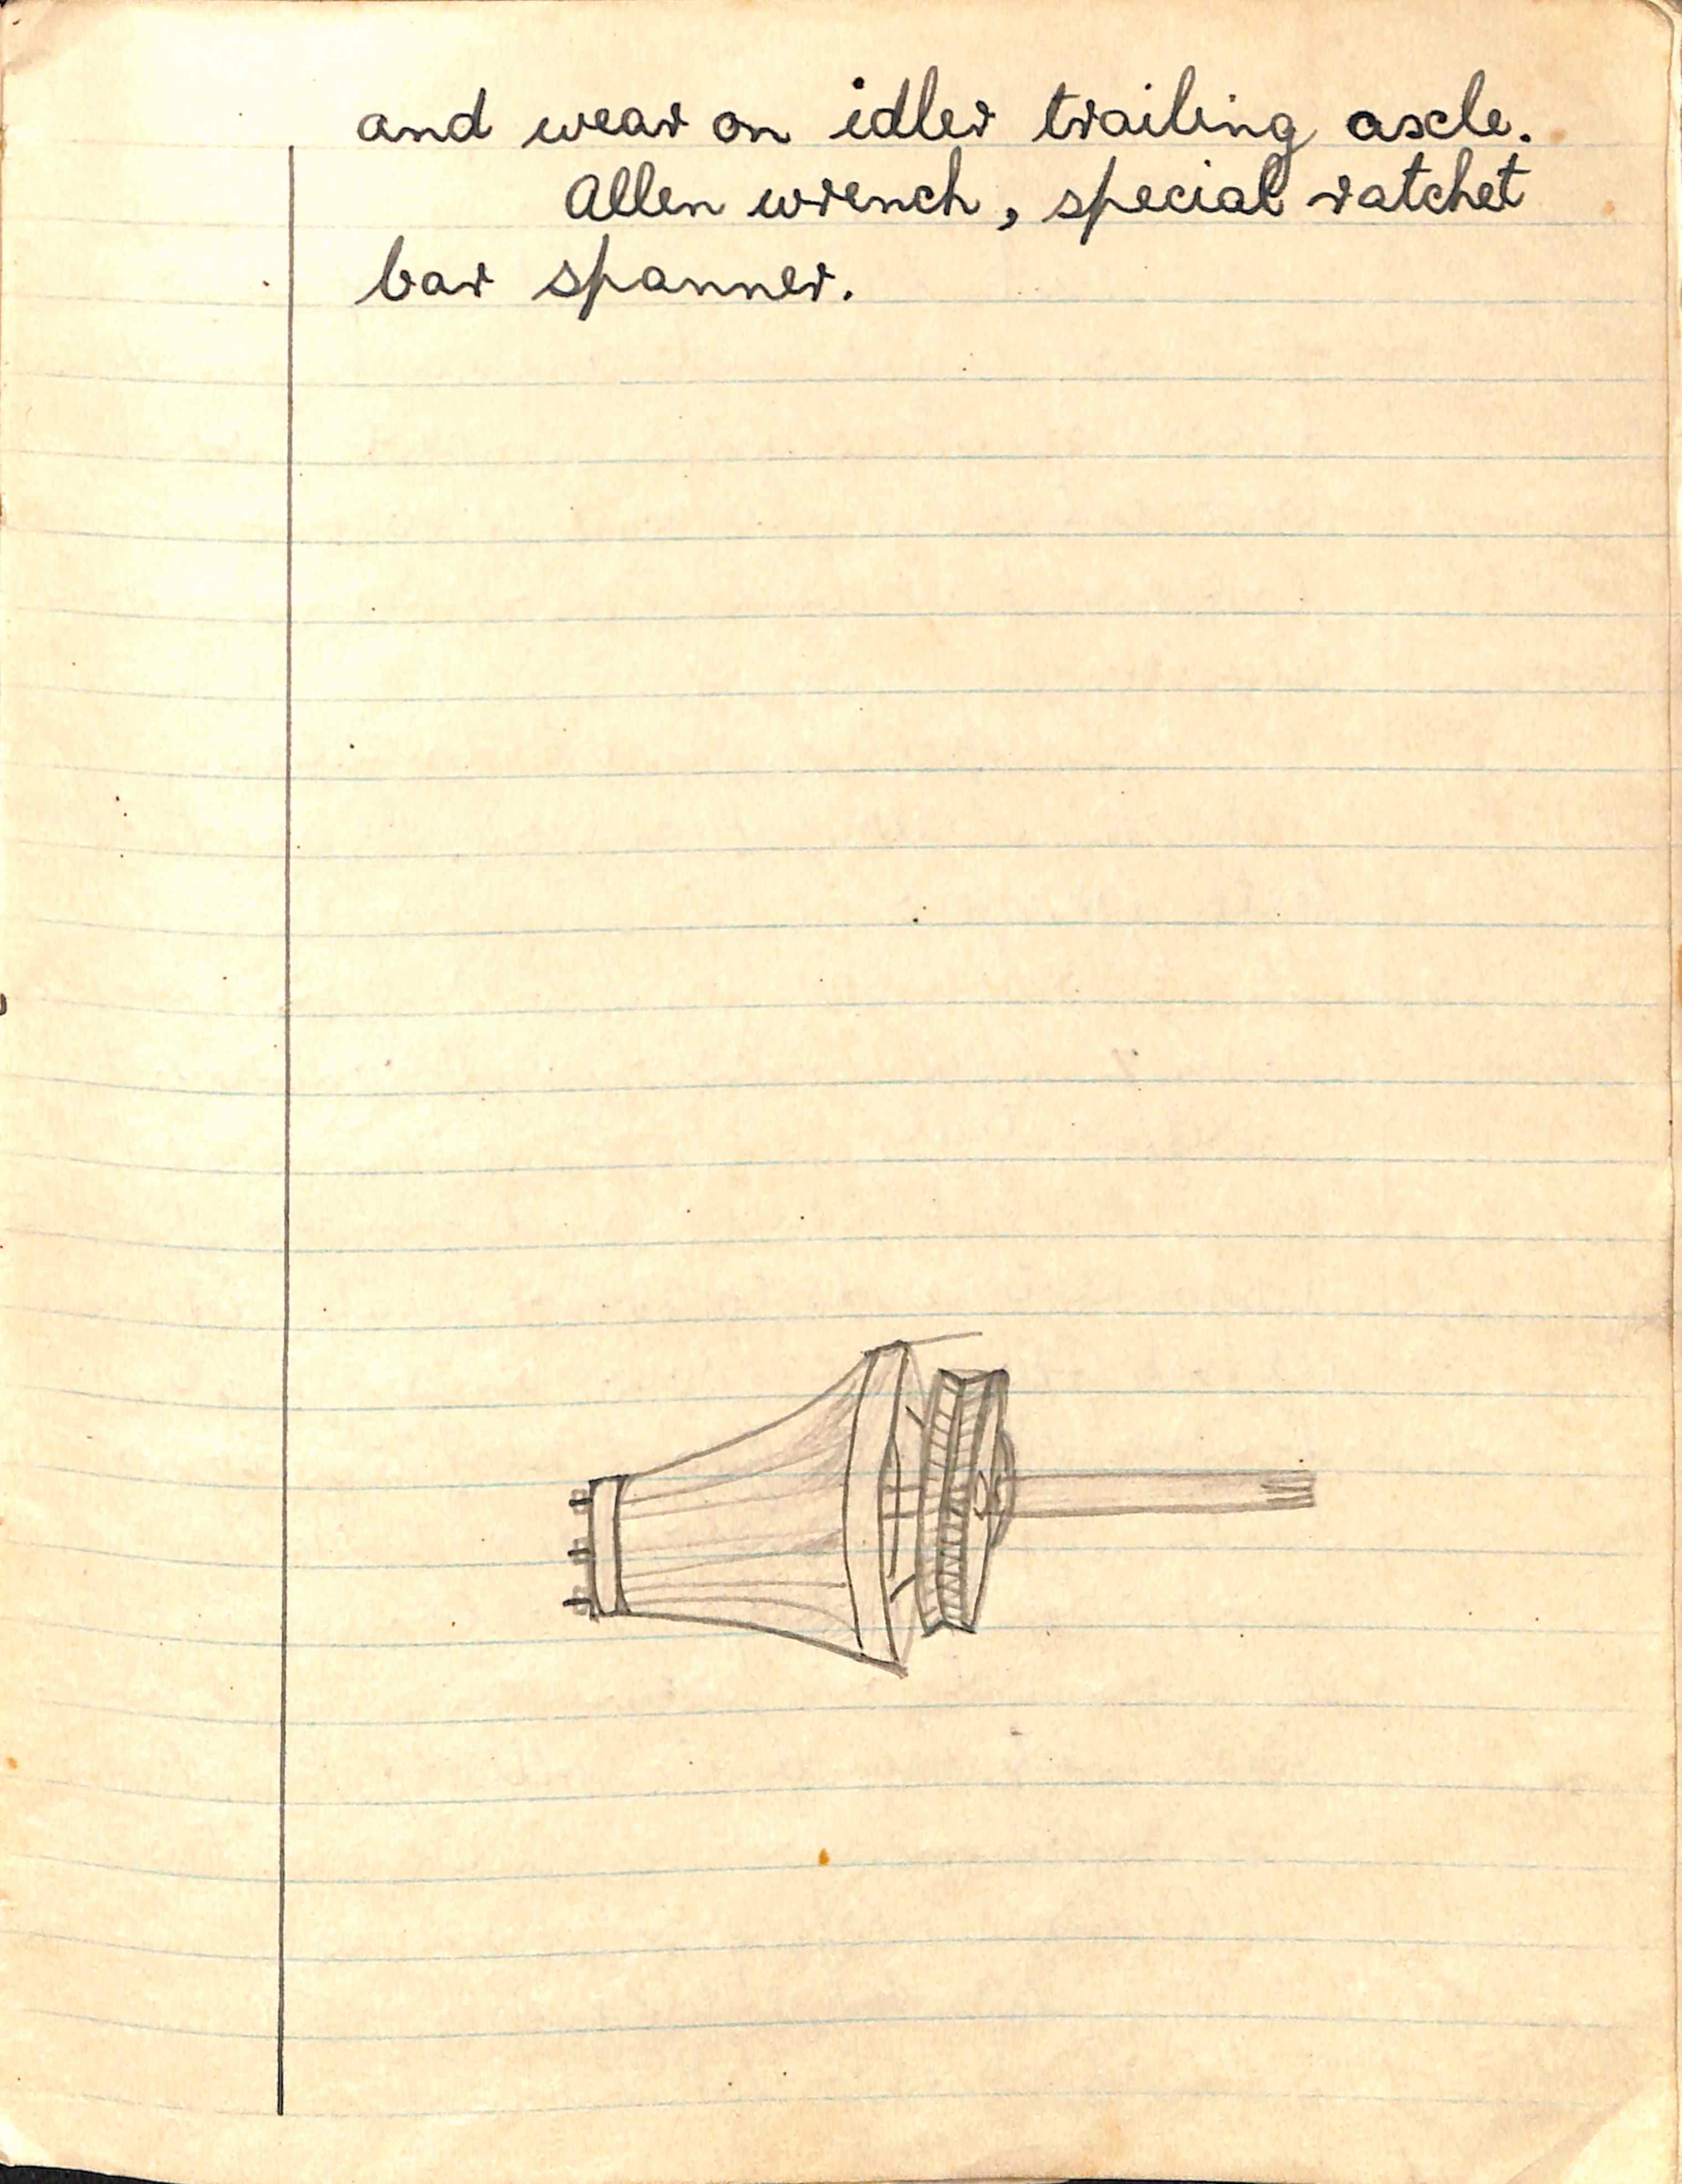 and wear on idler trailing axcle.
Allen wrench, special ratchet
bar spanner.